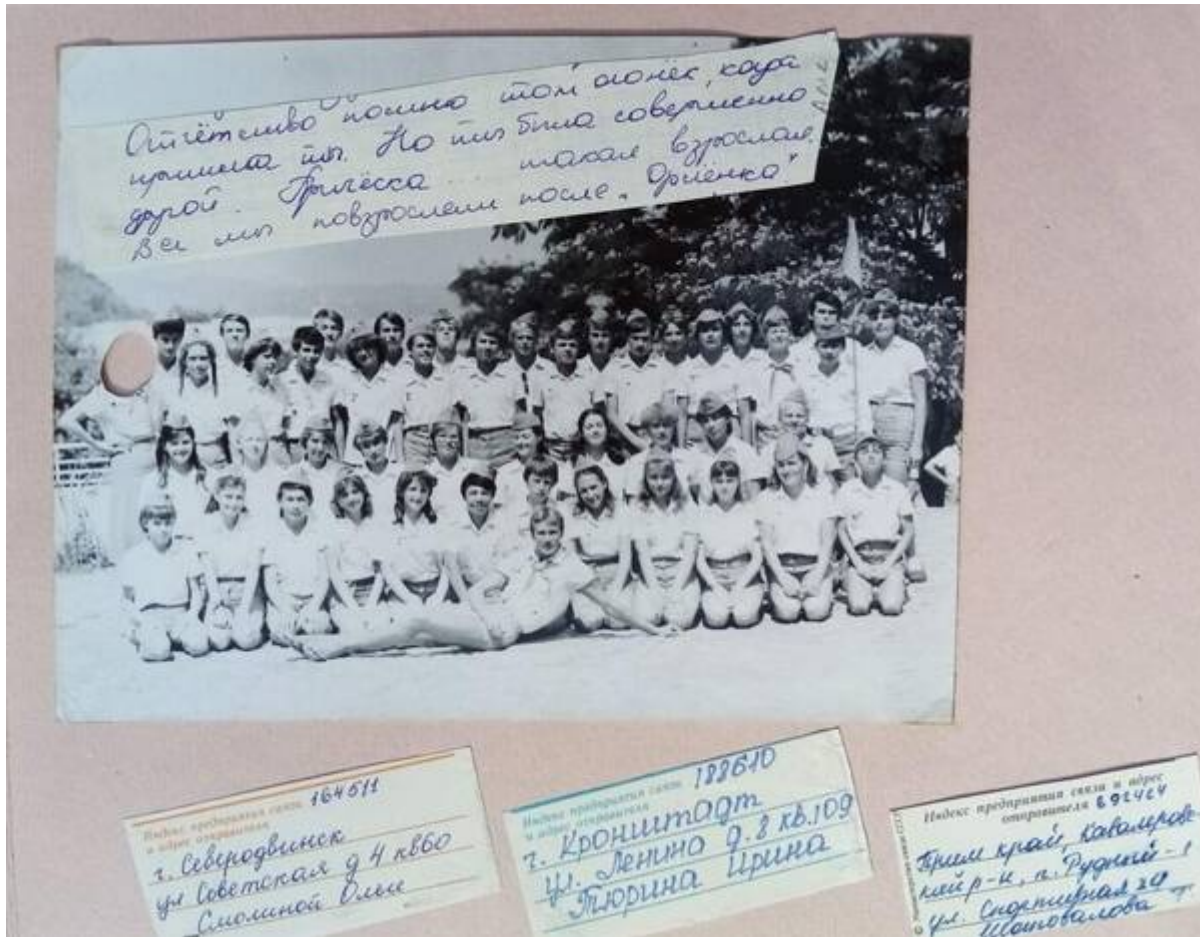 Отчётливо помню тот огонёк, когда
пришла ты. Но ты была совершенно
другой. Причёска... такая взрослая.
Все мы повзрослели после „Орлёнка"
Индекс предприятия связи 164511
и адрес отправителя
г. Северодвинск
ул Советская д 4 кв60
Смолиной Ольге
Индекс предприятия связи 188610
и адрес отправителя
г. Кронштадт
ул. Ленина д. 8 кв. 109
Тюрина Ирина
Индекс предприятия связи и адрес
отправителя 692424
Прим край, Кавалеровс
кий р-н, п. Рудный-1
ул. Спортивная
Шаповалова